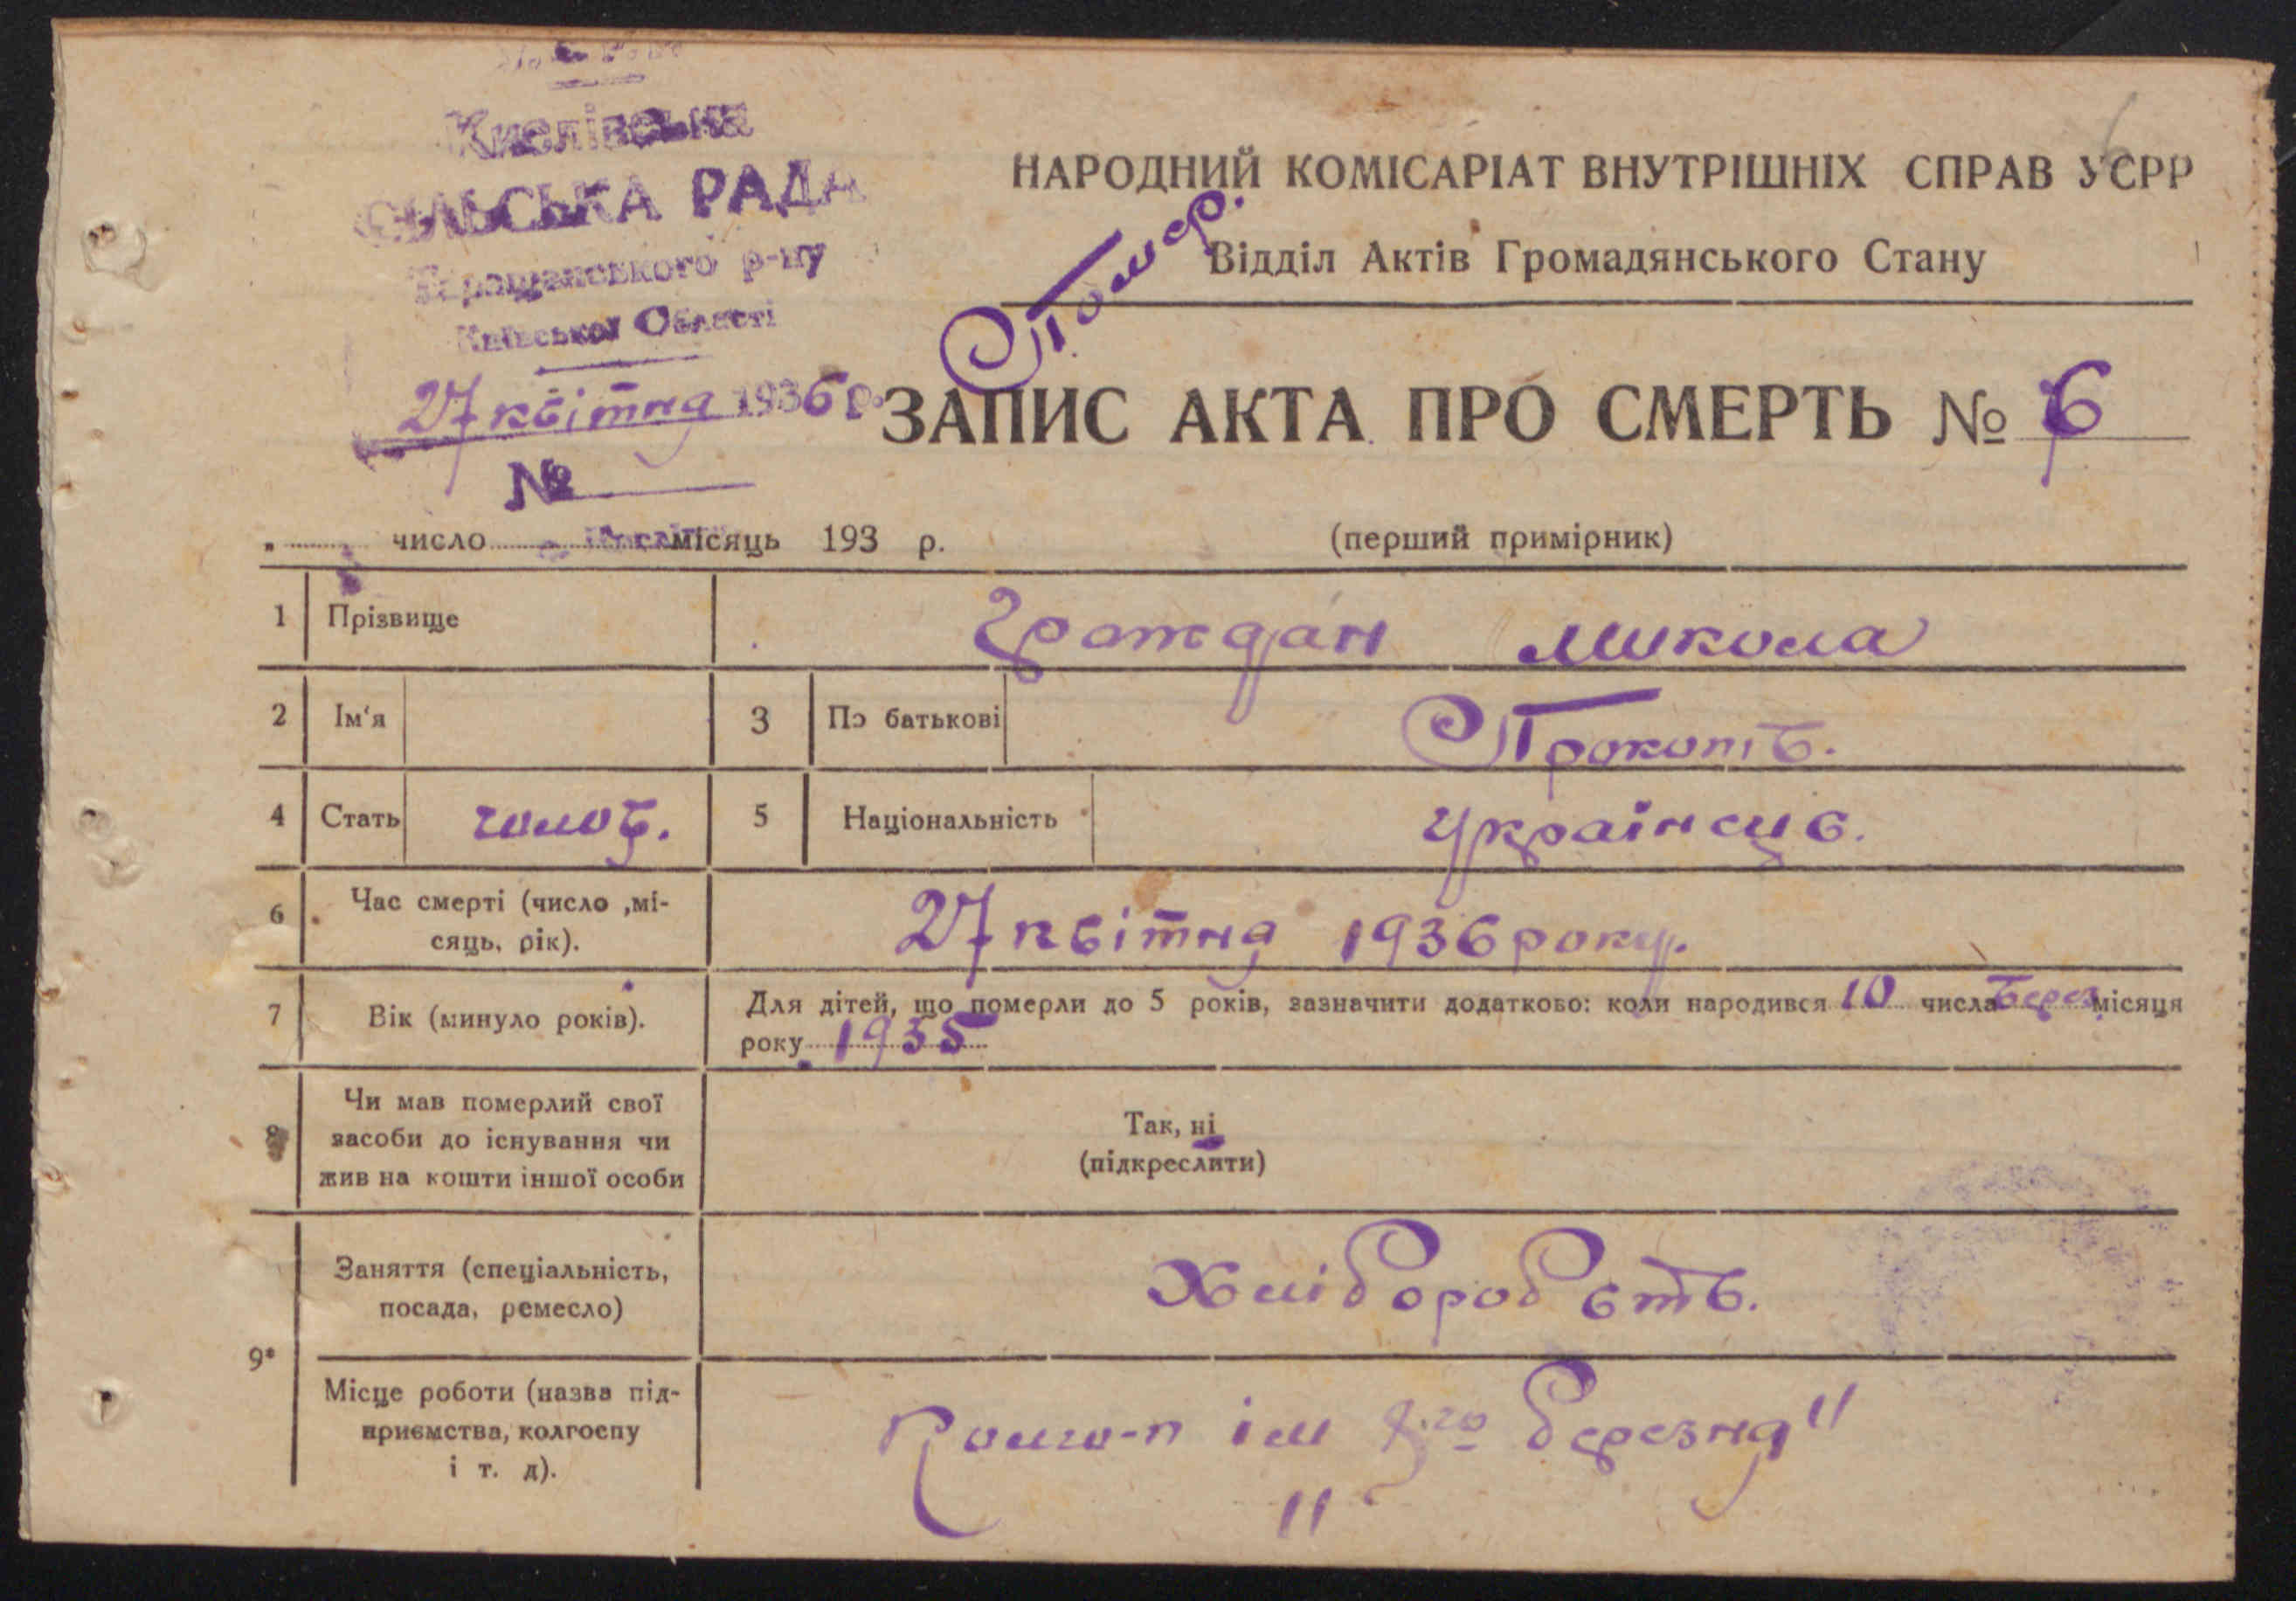 Кислівська
СІЛЬСЬКА РАДА
Таращанського р-ну
Київської Області
27 квітня 1936 р.
№
НАРОДНИЙ КОМІСАРІАТ ВНУТРІШНІХ СПРАВ УСРР
6
Відділ Актів Громадянського Стану
Помер.
ЗАПИС АКТА ПРО СМЕРТЬ № 6
" число місяць 193 р.
(перший примірник)
1 Прізвище Граждан Микола
2 Ім'я 3 По батькові Прокопів.
4 Стать чолов. 5 Національність українец в.
6 Час смерті (число ,мі-
сяць, рік). 27 квітня 1936 року.
7 Вік (минуло років). Для дітей, що померли до 5 років, зазначити додатково: коли народився 10 числа Берез. місяця
року 1935
8 Чи мав померлий свої
засоби до існування чи
жив на кошти іншої особи
Так, ні
(підкреслити)
9*
Заняття (спеціальність,
посада, ремесло)
Хліборобств.
Місце роботи (назва під-
приємства, колгоспу
і т. д).
Колго-п ім 8-го березня"
"